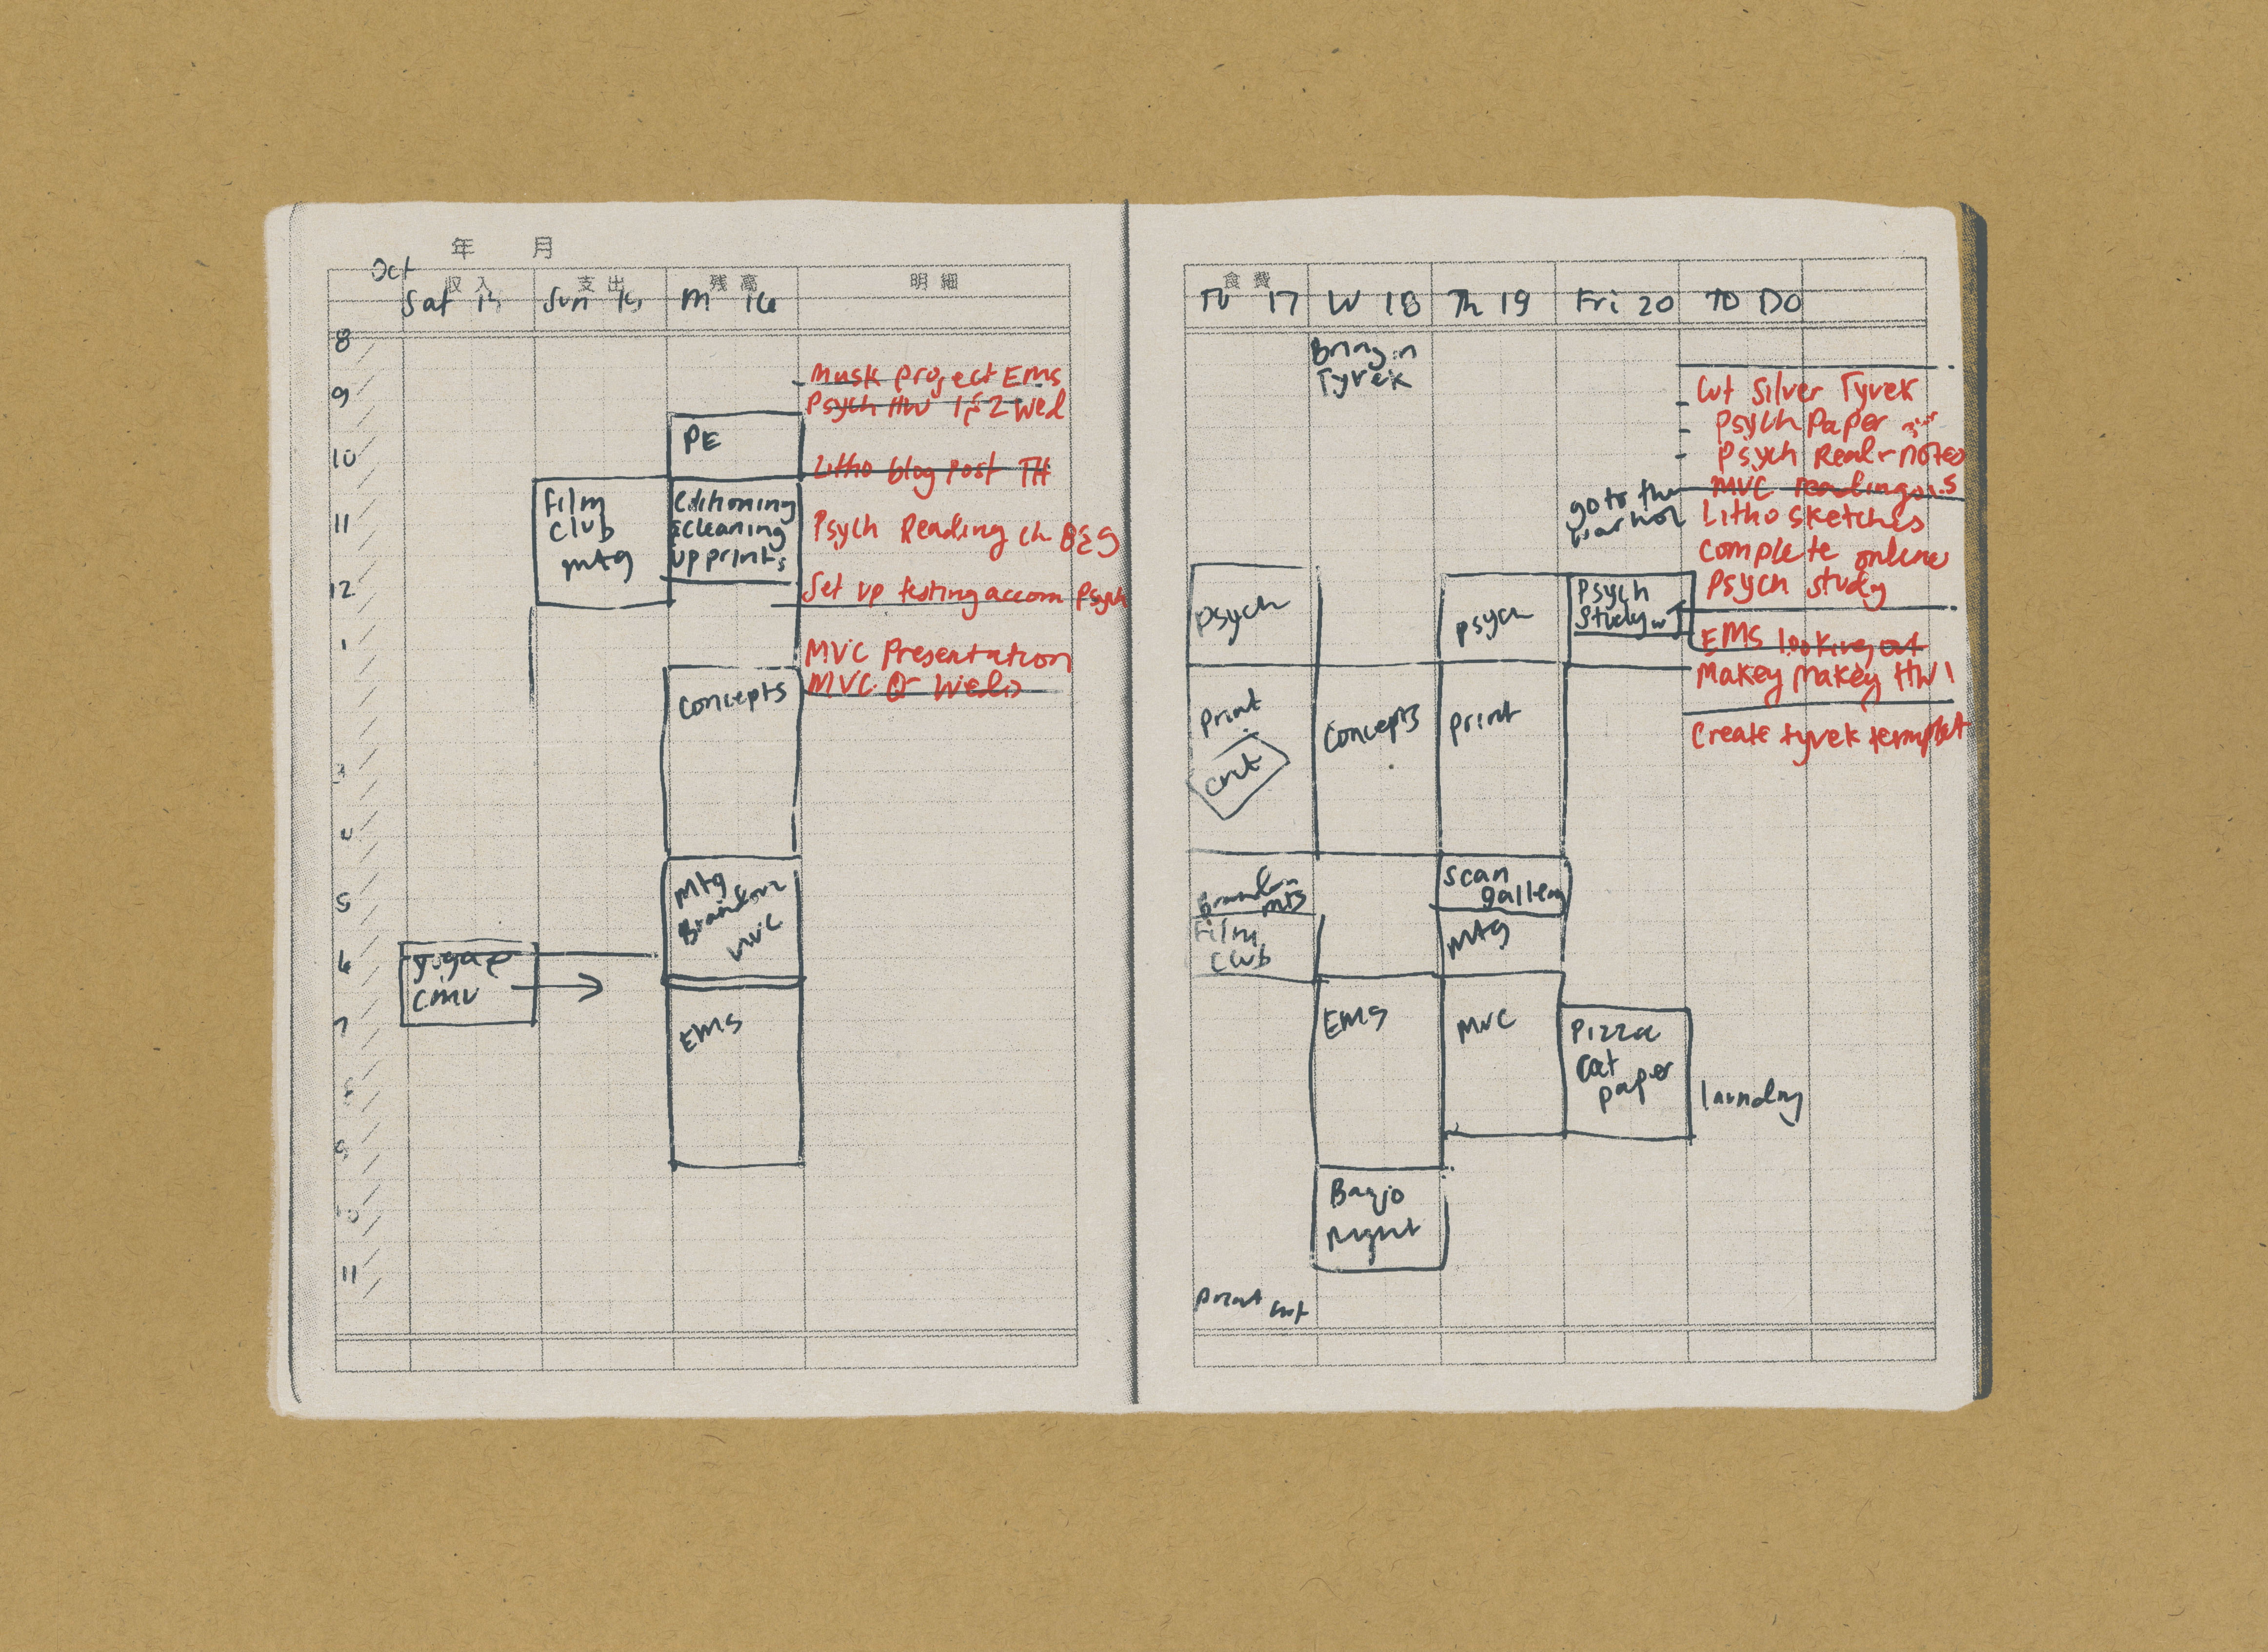 年 月
Oct
収入 支出 残高 明細
Sat Sun 15 M 16
8
9
10
11
12
1
3
4
5
6
7
8
9
10
11
Film
club
mtg
cmu
PE
Editioning
& cleaning
up prints
Concepts
Mtg
Brandon
MVC
EMS
Musk project EMS
Psych HW 1 & 2 Wed
Litho blog post TH
Psych Reading ch 8 & 9
Set up testing accom Psych
MVC Presentation
MVC Q
食費
TU 17 W 18 Th 19 Fri 20 TO DO
Psych
Print
crit
Brandon
mtg
Film
Club
Print
Bring in
Tyvek
Concepts
EMS
Banjo
night
Psych
Print
Scan
gallery
mtg
MVC
go to the
warhol
Psych
Study
Pizza
cat
paper
Cut Silver Tyvek
Psych Paper
Psych Read + notes
MVC readings
Litho sketches
complete online
Psych study
EMS looking out
Makey Makey HW 1
Create tyvek templat
laundry